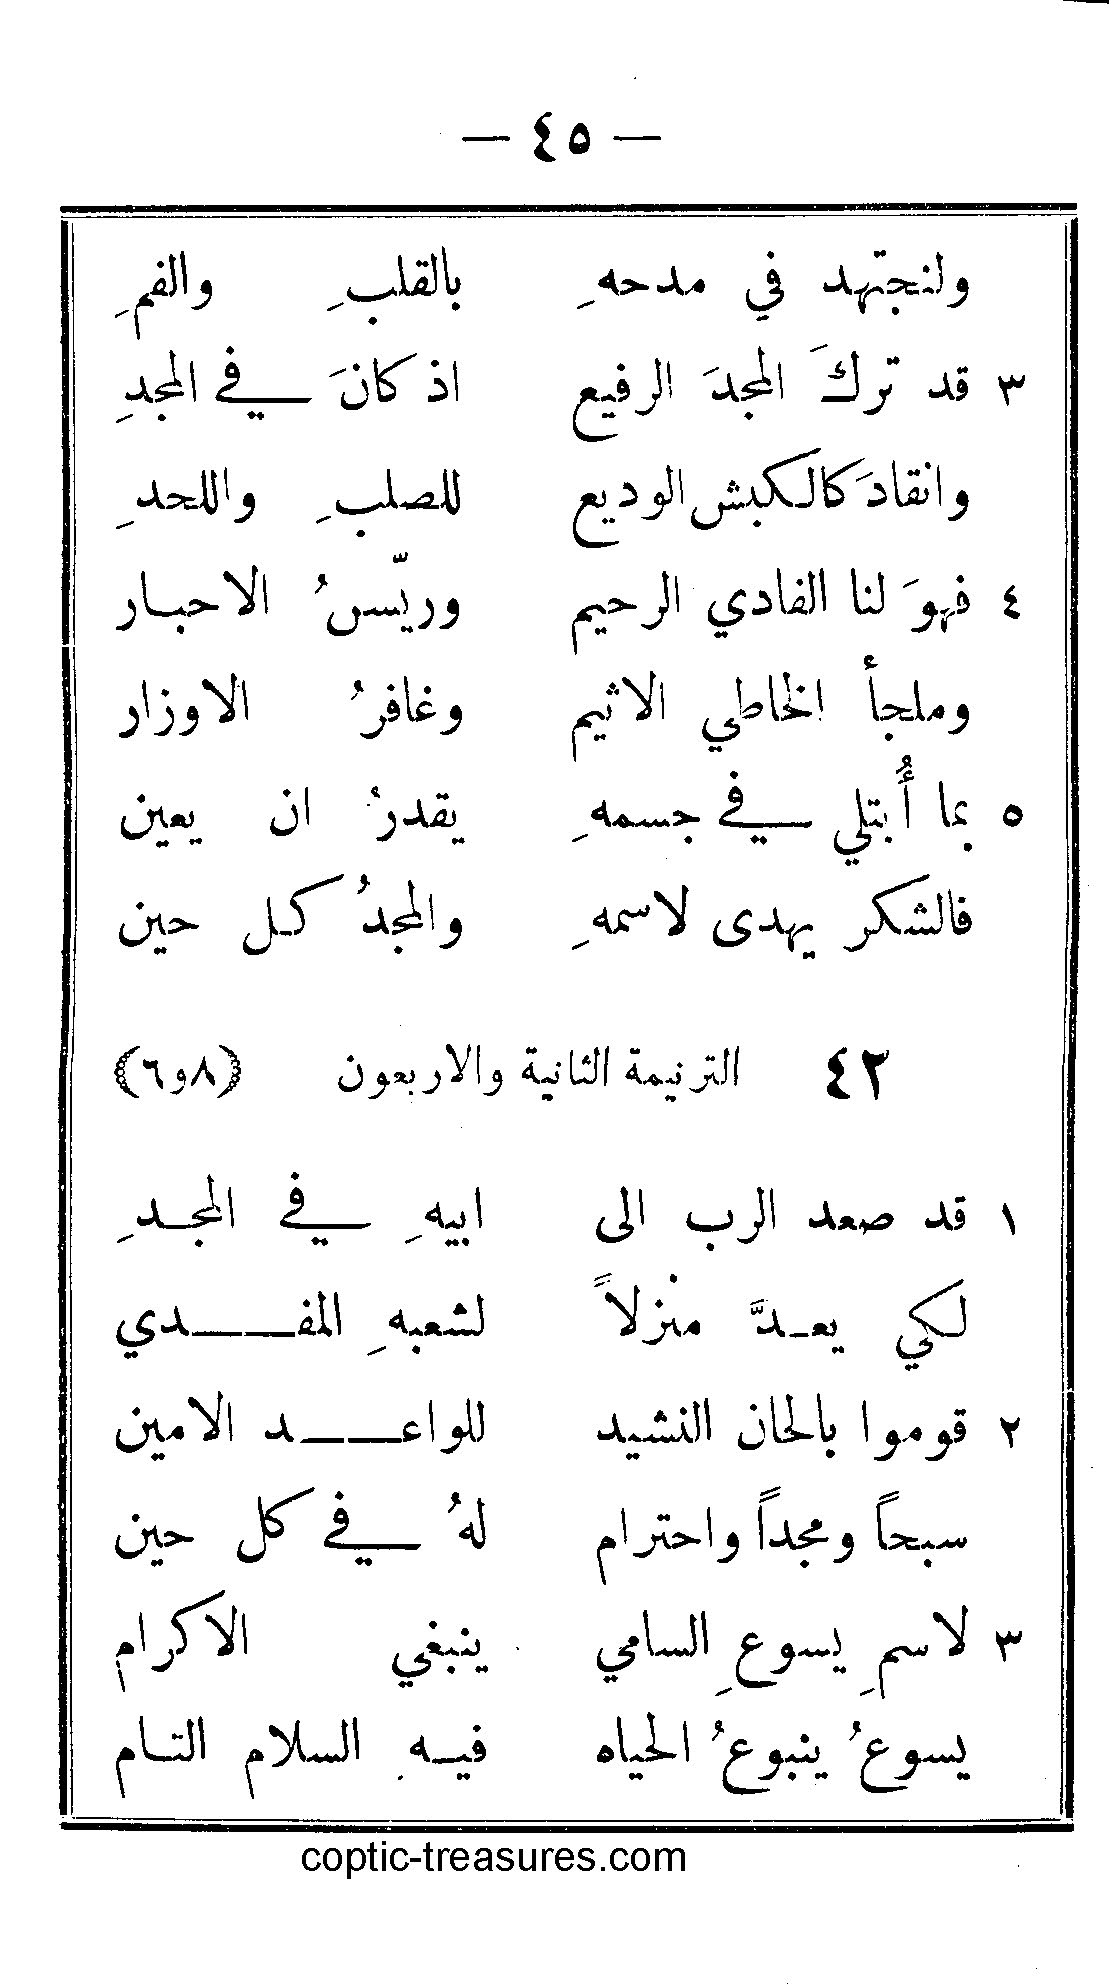 — ٤٥ —
ولنجتهد في مدحهِ بالقلبِ والفمِ
٣ قد تركَ المجدَ الرفيع اذ كانَ في المجدِ
وانقادَ كالكبش الوديع للصلبِ واللحدِ
٤ فهوَ لنا الفادي الرحيم وريّسُ الاحبار
وملجأ الخاطي الاثيم وغافرُ الاوزار
٥ بما أُبتلي في جسمهِ يقدرُ ان يعين
فالشكر يهدى لاسمهِ والمجدُ كل حين
٤٢ الترنيمة الثانية والاربعون (٨و٦)
١ قد صعد الرب الى ابيهِ في المجدِ
لكي يعدَّ منزلاً لشعبهِ المفدي
٢ قوموا بالحان النشيد للواعد الامين
سبحاً ومجداً واحترام لهُ في كل حين
٣ لاسمِ يسوعِ السامي ينبغي الاكرام
يسوعُ ينبوعُ الحياه فيهِ السلام التام
coptic-treasures.com